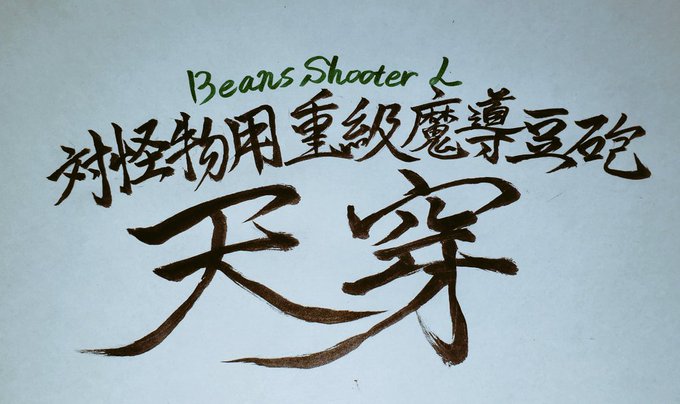 Beans Shooter L
対怪物用重級魔導豆砲
天穿